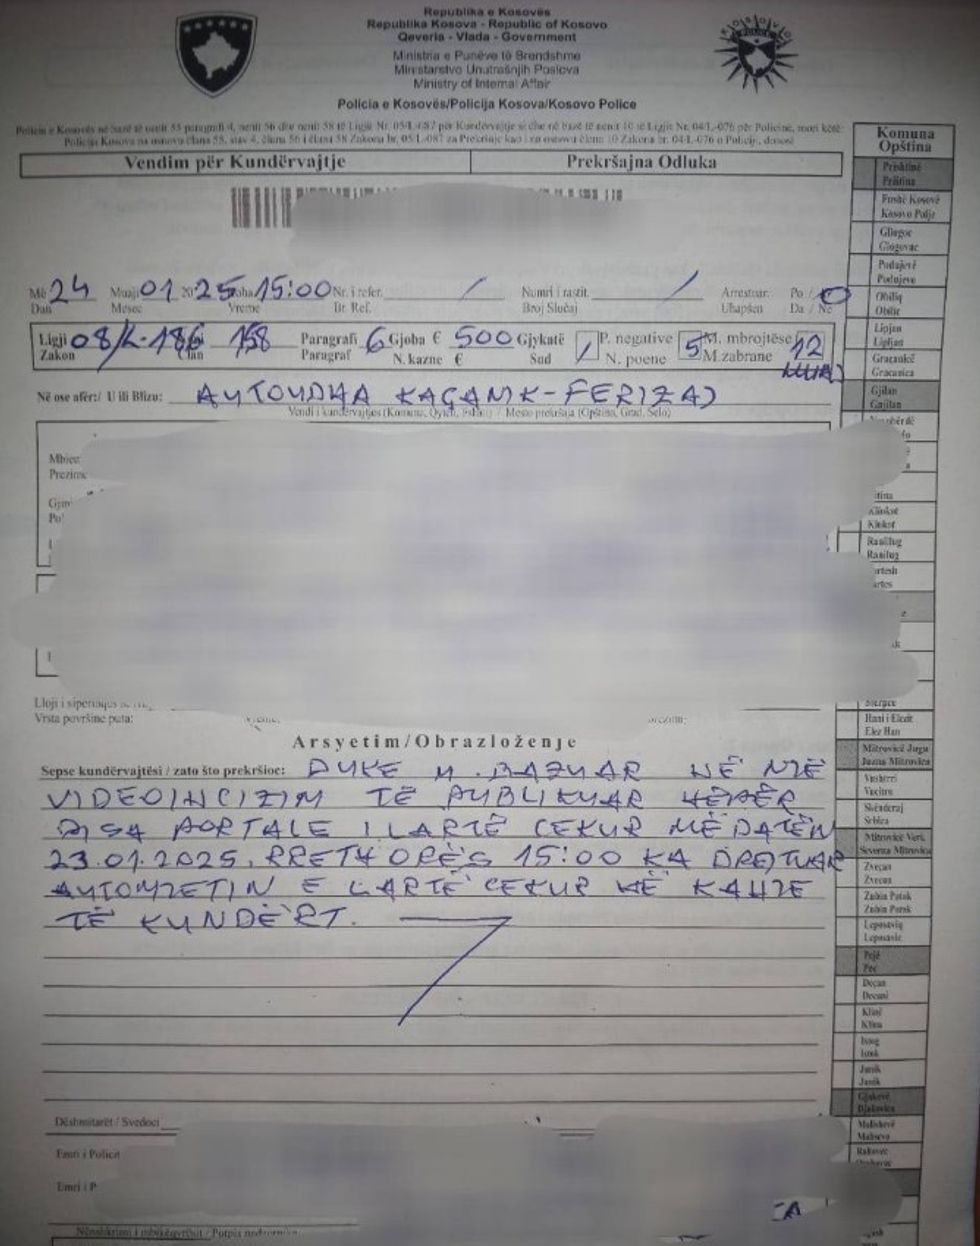 Republika e Kosovës
Republika Kosova - Republic of Kosovo
Qeveria - Vlada - Government
Ministria e Punëve të Brendshme
Ministarstvo Unutrašnjih Poslova
Ministry of Internal Affair
Policia e Kosovës/Policija Kosova/Kosovo Police
Policia e Kosovës në bazë të nenit 55 paragrafi 4, nenit 56 dhe nenit 58 të Ligjit Nr. 05/L-087 për Kundërvajtje si dhe në bazë të nenit 10 të Ligjit Nr. 04/L-076 për Policinë, mori këtë:
Policija Kosova na osnovu člana 55, stav 4, člana 56 i člana 58 Zakona br. 05/L-087 za Prekršaje kao i na osnovu člana 10 Zakona br. 04/L-076 o Policiji, donosi
Vendim për Kundërvajtje Prekršajna Odluka
Më 24 Muaji 01 2025 Koha 15:00 Nr. i refer. / Numri i rastit. / Arrestuar. Po / Jo
Dan Mesec Vreme Br. Ref. Broj Slučaj Uhapšen Da / Ne
Ligji 08/L-186 158 Paragrafi 6 Gjoba € 500 Gjykatë / P. negative 5 M. mbrojtëse 12
Zakon Paragraf N. kazne € Sud N. poene M. zabrane MUAJ
Në ose afër:/ U ili Blizu: AUTOUDHA KAÇANIK-FERIZAJ
Vendi i kundërvajtjes (Komuna, Qyteti, Fshati) / Mesto prekršaja (Opština, Grad, Selo)
Mbiem
Prezime
Lloji i sipërfaqes
Vrsta površine puta:
Arsyetim/Obrazloženje
Sepse kundërvajtësi / zato što prekršioc: DUKE U BAZUAR NË NJË
VIDEOINCIZIM TË PUBLIKUAR NËPËR
DISA PORTALE I LARTË CEKUR ME DATËN
23.01.2025, RRETH ORËS 15:00 KA DREJTUAR
AUTOMJETIN E LARTË CEKUR NË KAHJE
TË KUNDËRT.
Dëshmitarët / Svedoci
Emri i Policit
Emri i P
Nënshkrimi i mbikëqyrësit / Potpis nadzornika
Komuna
Opština
Prishtinë
Priština
Fushë Kosovë
Kosovo Polje
Gllogoc
Glogovac
Podujevë
Podujevo
Obiliq
Obilić
Lipjan
Lipljan
Gracanicë
Gracanica
Gjilan
Gnjilan
Kllokot
Klokot
Ranillug
Ranilug
Hani i Elezit
Elez Han
Mitrovicë Jugu
Juzna Mitrovica
Vushtrri
Vucitrn
Skënderaj
Srbica
Mitrovicë Veri.
Severna Mitrovica
Zvecan
Zvecan
Zubin Potok
Zubin Potok
Leposaviq
Leposavic
Pejë
Pec
Deçan
Decani
Klinë
Klina
Istog
Istok
Junik
Junik
Gjakovë
Djakovica
Malishevë
Malisevo
Rahovec
Orahovac